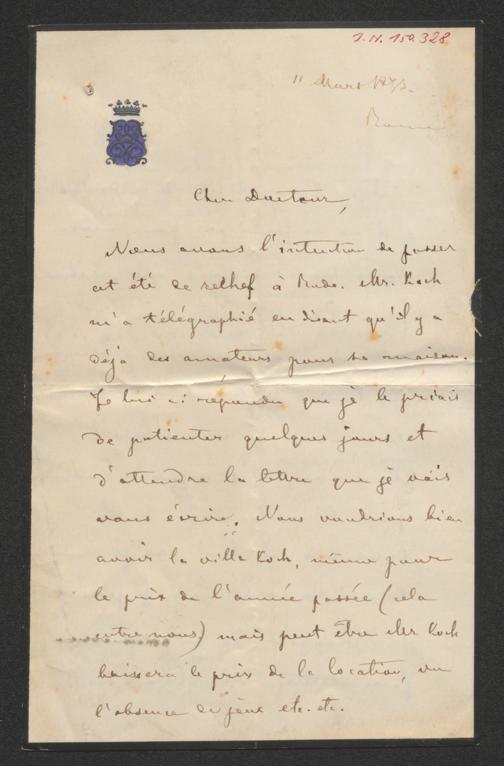 I.N. 159.328
11 Mars 1873.
Cher Docteur,
Nous avons l'intention de passer
cet été de à Bade. Mr. Koch
m'a télégraphié en disant qu'il y a
déjà des amateurs pour sa maison.
Je lui ai répondu que je le priais
de patienter quelques jours et
d'attendre la lettre que je vais
vous écrire. Nous voudrions bien
avoir la villa Koch, même pour
le prix de l'année passée (cela
entre nous) mais peut être Mr Koch
baissera le prix de la location, vu
l'absence de jeux etc. etc.